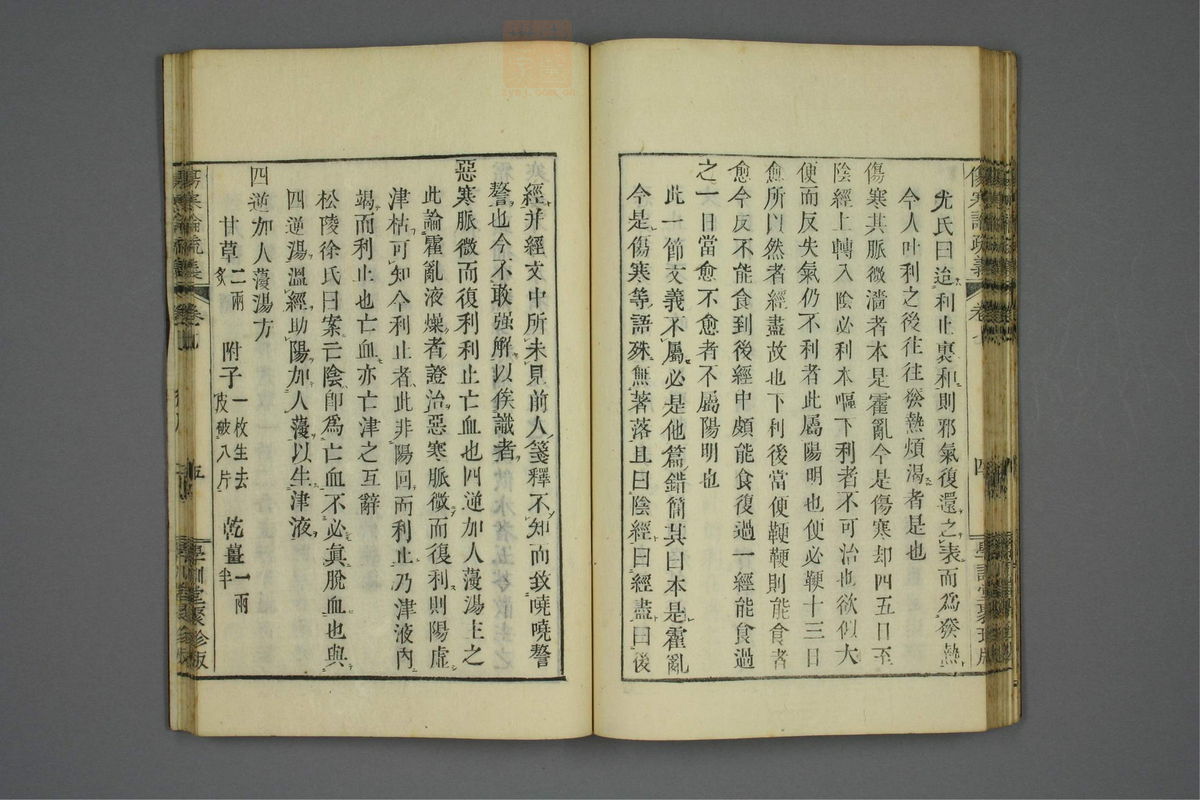 尤氏曰迨利止裏和則邪氣復還之表而為發熱
今人吐利之後往往發熱煩渴者是也
傷寒其脈微濇者本是霍亂今是傷寒却四五日至
陰經上轉入陰必利本嘔下利者不可治也欲似大
便而反失氣仍不利者此屬陽明也便必鞕十三日
愈所以然者經盡故也下利後當便鞕鞕則能食者
愈今反不能食到後經中頗能食復過一經能食過
之一日當愈不愈者不屬陽明也
此一節文義不屬必是他篇錯簡其曰本是霍亂
今是傷寒等語殊無著落且曰陰經曰經盡曰後
傷寒論疏義
卷
四
學訓堂聚珍版
經并經文中所未見前人箋釋不知向敓嘵嘵聱
聱也今不敢强解以俟識者
惡寒脈微而復利利止亡血也四逆加人薓湯主之
此論霍亂液燥者證治惡寒脈微而復利則陽虛
津枯可知今利止者此非陽回而利止乃津液內
竭而利止也亡血亦亡津之互辭
松陵徐氏曰案亡陰卽為亡血不必眞脫血也與
四逆湯溫經助陽加人薓以生津液
四逆加人薓湯方
甘草二兩炙 附子一枚生去皮破八片 乾薑一兩半
傷寒論疏義
卷七
五
學訓堂聚珍版